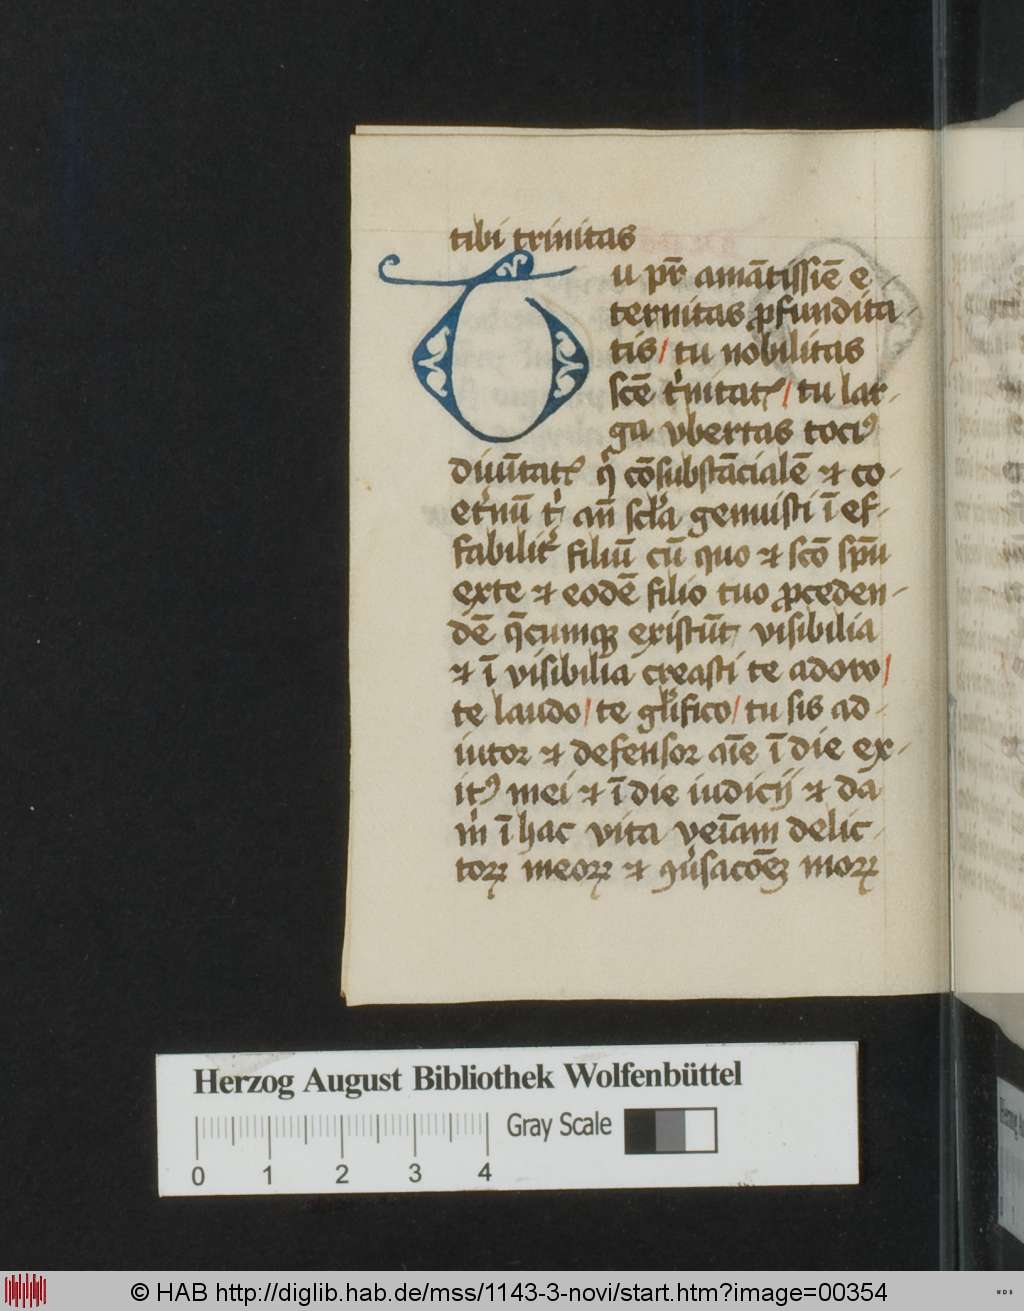 tibi trinitas
Tu pr̄ amātissīe e
ternitas ꝓfundita
tis/ tu nobilitas
scē tᷥnitatꝭ/ tu lar-
ga vbertas tociꝰ
diuītatꝭ qͥ cōsubstācialē ⁊ co-
etͥnū tͥ an̄ scl̄a genuisti ī ef-
fabilitͥ filiū cū quo ⁊ scō spū
exte ⁊ eodē filio tuo ꝓceden-
dē q̄cumqꝫ existūt visibilia
⁊ ī visibilia creasti te adoro/
te laudo/ te gl̄ifico/ tu sis ad-
iutor ⁊ defensor aīe ī die ex-
itꝰ mei ⁊ ī die iudicij ⁊ da
mͥ ī hac vita veīam delic-
toꝝ meoꝝ ⁊ ꝯuͥsacōeꝫ moꝝ
Herzog August Bibliothek Wolfenbüttel
Gray Scale
0 1 2 3 4
© HAB http://diglib.hab.de/mss/1143-3-novi/start.htm?image=00354